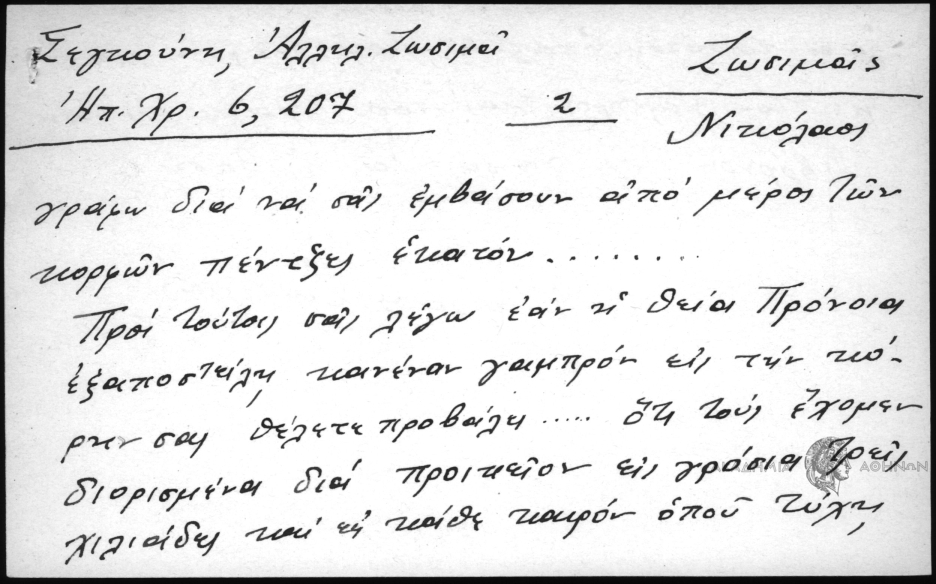 Σεγκούνη, Ἀλληλ. Ζωσιμᾶ
Ζωσιμᾶς
Ἠπ. Χρ. 6, 207
2
Νικόλαος
γράφω διά νά σᾶς ἐμβάσουν ἀπό μέρος τῶν
κορφῶν πέντεξες ἑκατόν.........
Πρός τούτοις σᾶς λέγω ἐάν ἡ θεία Πρόνοια
ἐξαποστείλη κανέναν γαμπρόν εἰς τήν κό-
ρην σας θέλετε προβάλη..... ὅτι τούς ἔχομεν
διορισμένα διά προικεῖον εἰς γρόσια τρεῖς
χιλιάδες καί εἰς κάθε καιρόν ὁποῦ τύχη,
ΑΘΗΝΩΝ